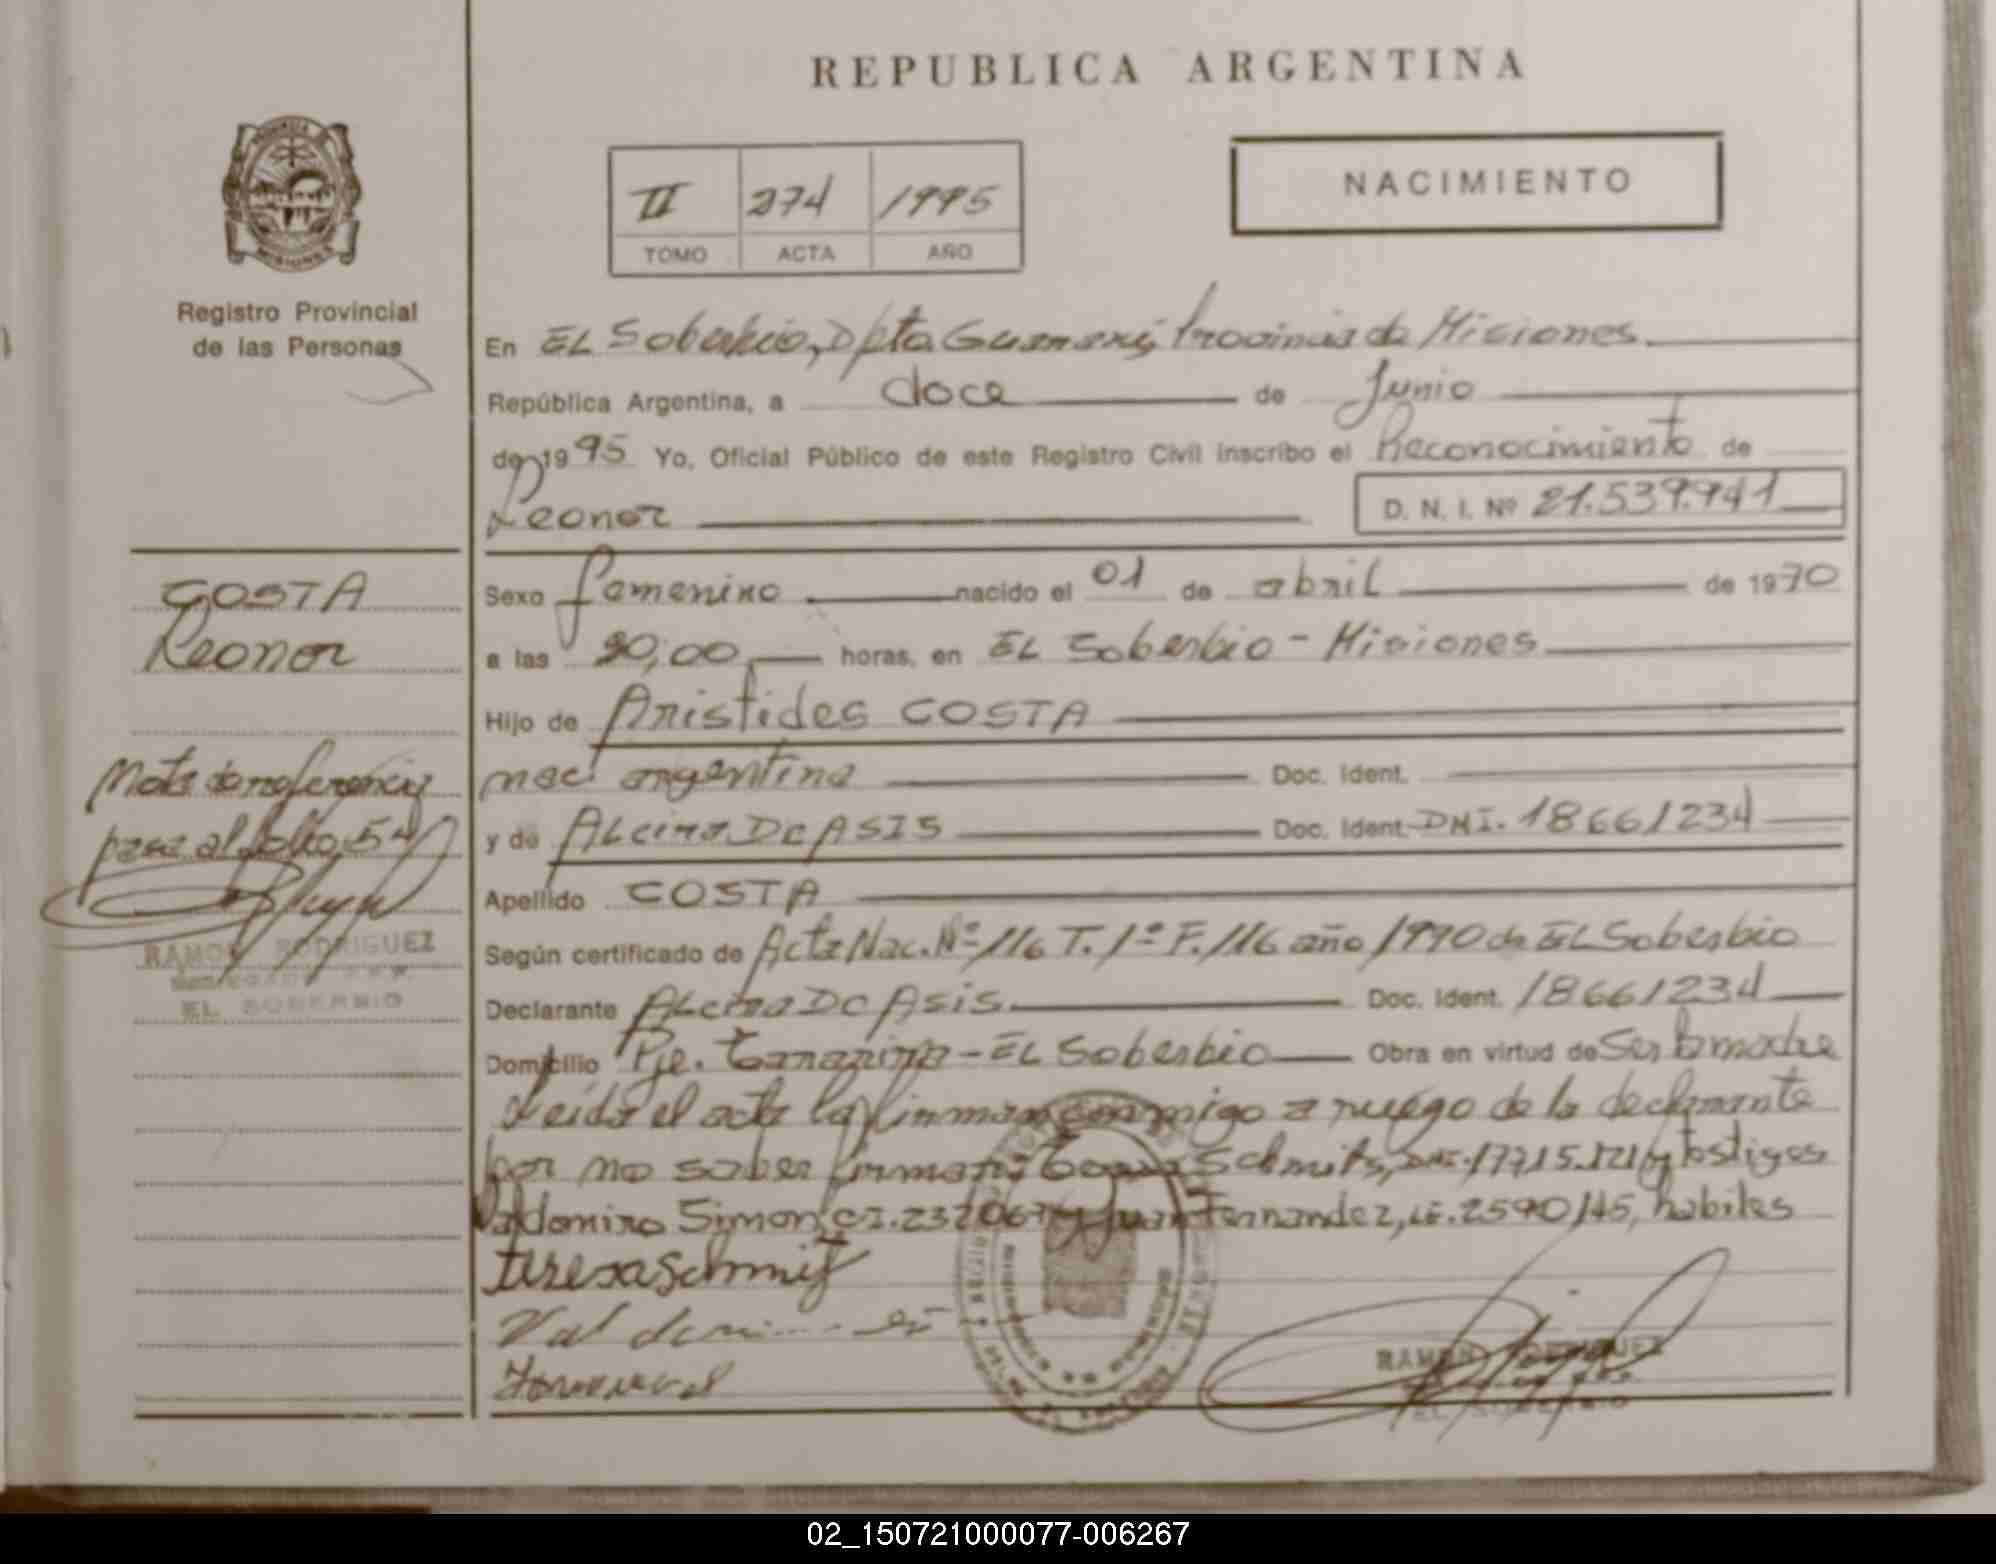 REPUBLICA ARGENTINA
NACIMIENTO
II 274 1995
TOMO ACTA AÑO
MISIONES
Registro Provincial
de las Personas
En EL Soberbio, Dpto Guarani, Provincia de Misiones
República Argentina, a doce de Junio
de 1995 Yo, Oficial Público de este Registro Civil inscribo el Reconocimiento de
Leonor D. N. I. Nº 21.539.941
COSTA
Leonor
Sexo femenino nacido el 01 de abril de 1970
a las 20,00 horas, en EL Soberbio - Misiones
Hijo de Aristides COSTA
nac. argentina Doc. Ident.
y de ALcira DE ASIS Doc. Ident. DNI. 18661234
Apellido COSTA
Nota de referencia
pasa al folio 54
RAMON RODRIGUEZ
EL SOBERBIO
Según certificado de Acta Nac. Nº 116 T. 1º F. 116 año 1970 de EL Soberbio
Declarante ALcira DE ASIS Doc. Ident. 18661234
Domicilio Pje. - EL Soberbio Obra en virtud de Ser la madre
Leida el acta la firman conmigo a ruego de la declarante
por no saber firmar: Schmits, DNI. y testigos
Valdomiro Simon, C.I. y Juan Fernandez, LE. 2590145, habiles
Teresa Schmit
RAMON RODRIGUEZ
EL SOBERBIO
02_150721000077-006267